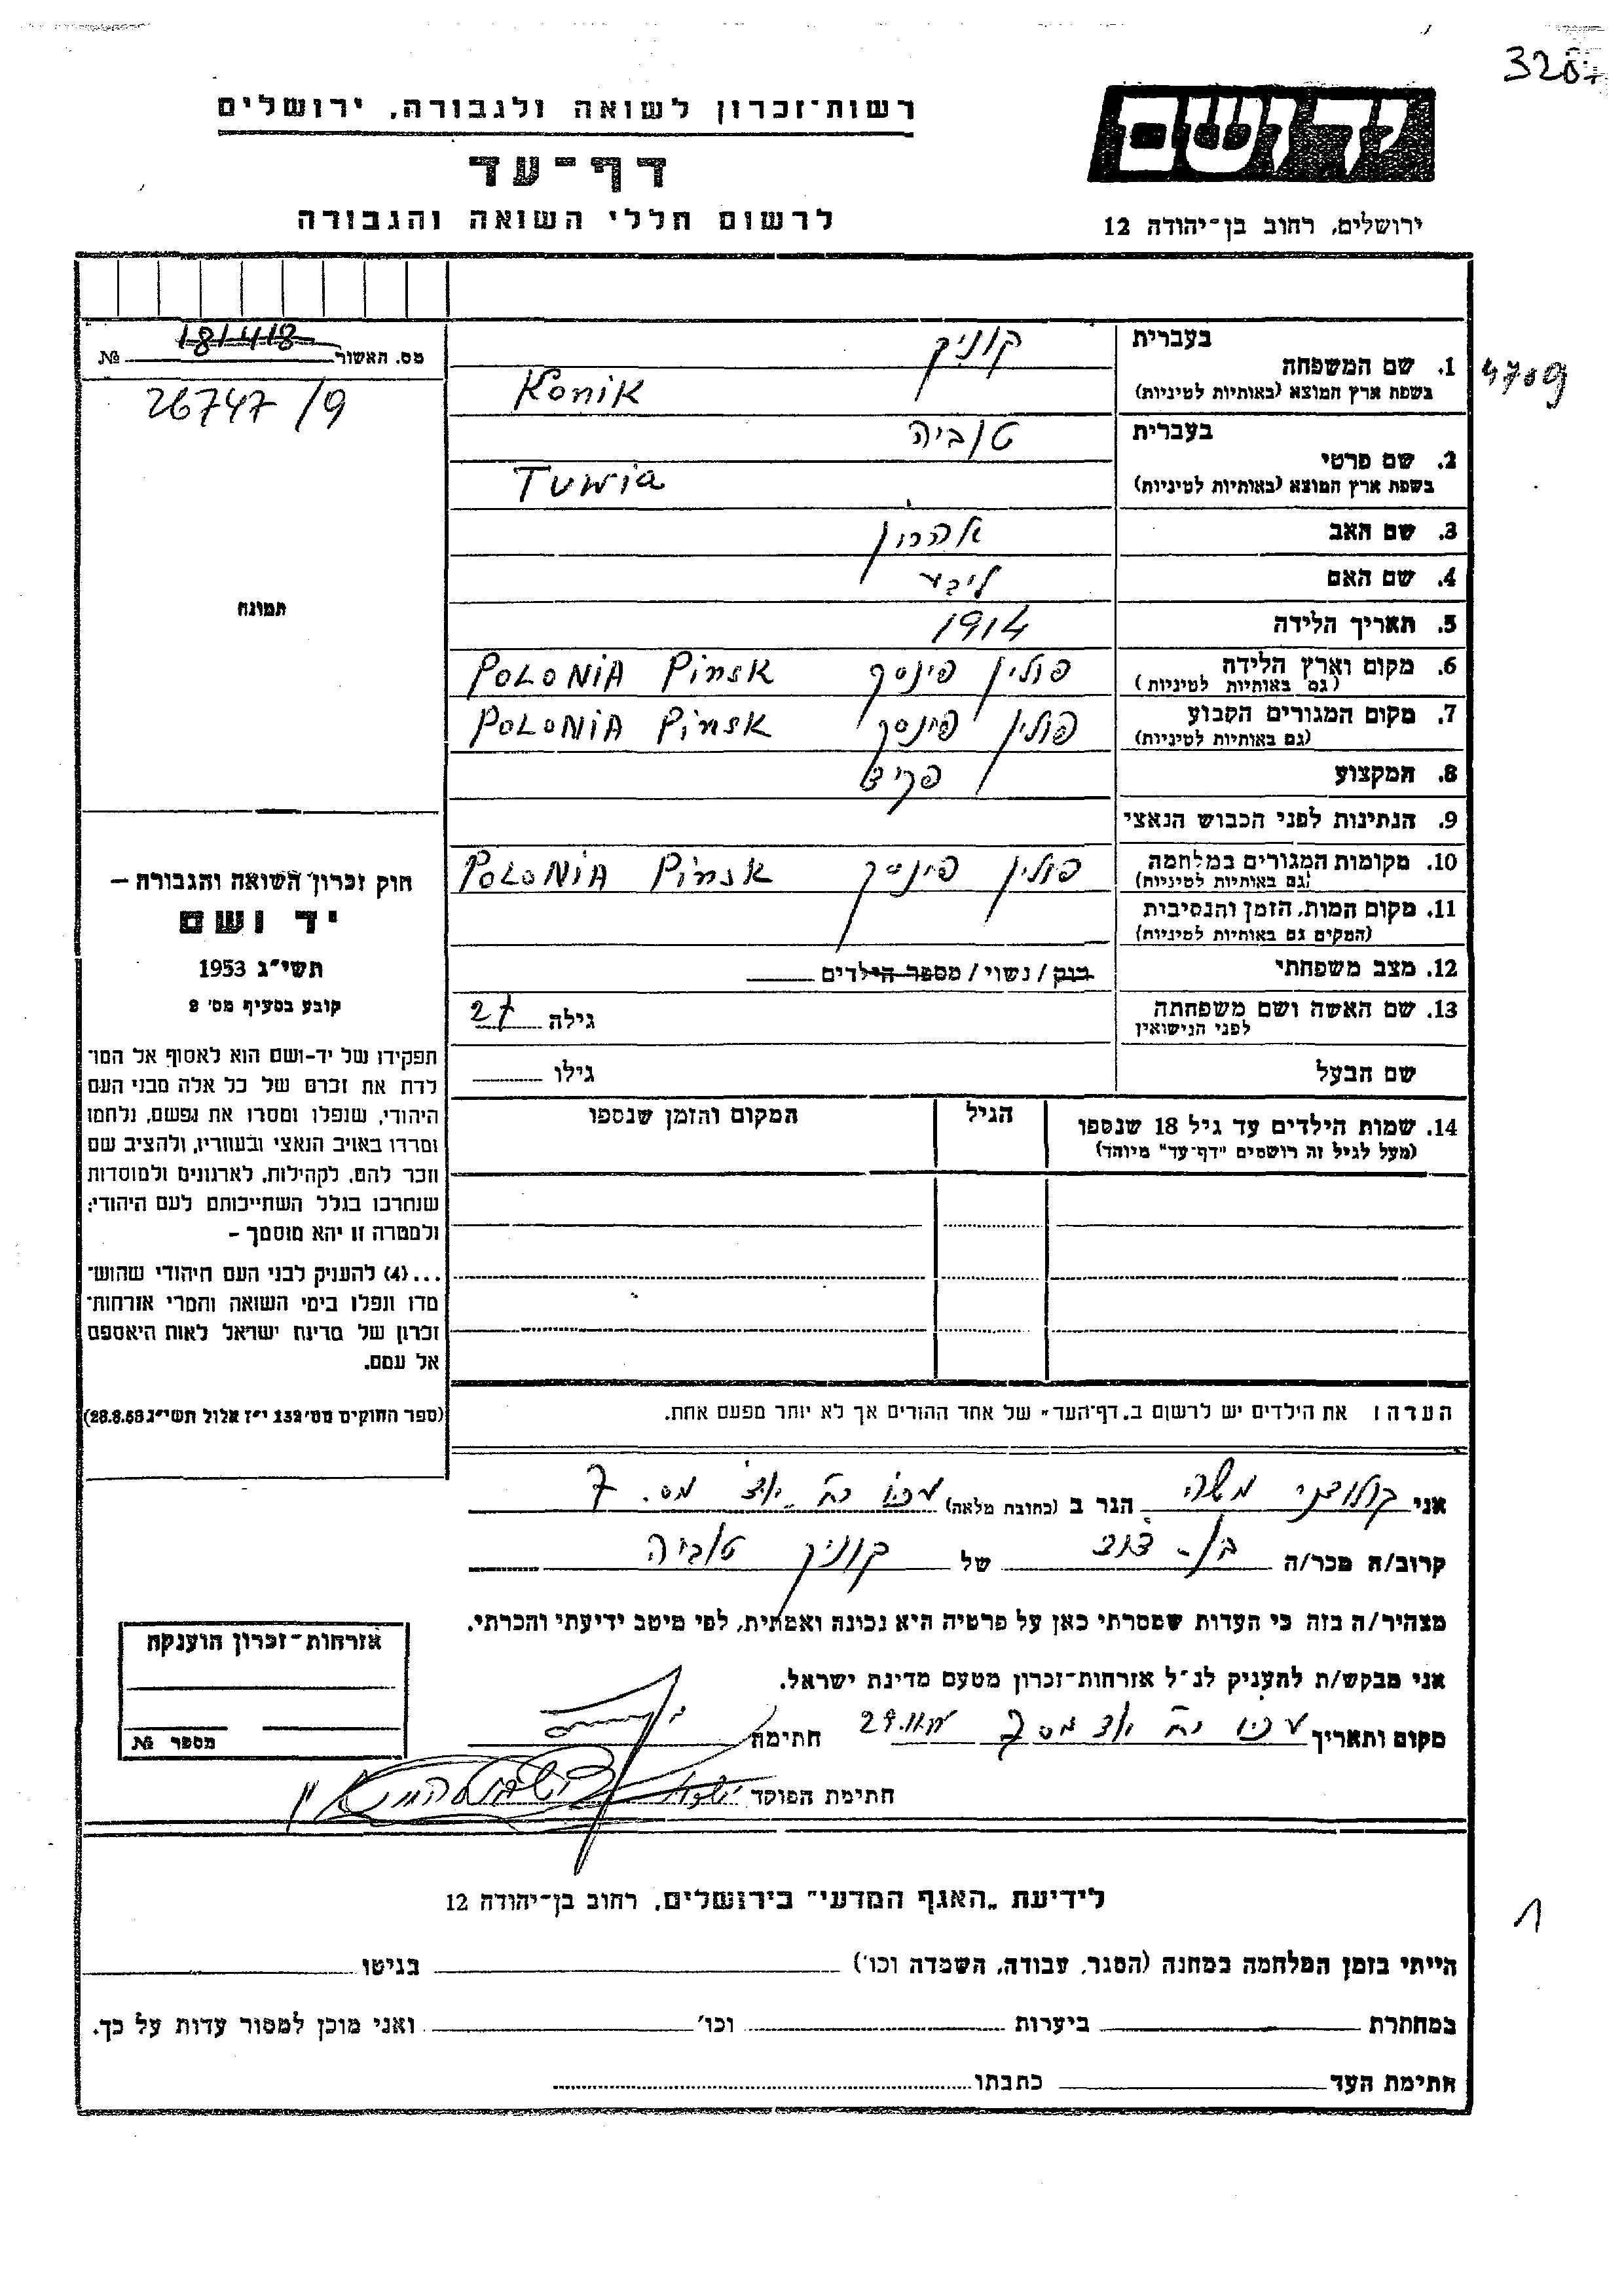 רשות־זכרון לשואה ולגבורה, ירושלים
דף־עד
לרשום חללי השואה והגבורה
יד ושם
ירושלים, רחוב בן־יהודה 12
4709
מס. האשור 181418 №
26747/9
תמונה
1. שם המשפחה בעברית קוניק
בשפת ארץ המוצא (באותיות לטיניות) Konik
2. שם פרטי בעברית טוביה
בשפת ארץ המוצא (באותיות לטיניות) Tuwia
3. שם האב אהרון
4. שם האם ליבע
5. תאריך הלידה 1914
6. מקום וארץ הלידה פולין פינסק POLONIA Pinsk
(גם באותיות לטיניות)
7. מקום המגורים הקבוע פולין פינסק POLONIA Pinsk
(גם באותיות לטיניות)
8. המקצוע
9. הנתינות לפני הכבוש הנאצי
10. מקומות המגורים במלחמה פולין פינסק POLONIA Pinsk
(גם באותיות לטיניות)
11. מקום המות, הזמן והנסיבות
(המקום גם באותיות לטיניות)
12. מצב משפחתי רווק / נשוי / מספר הילדים
13. שם האשה ושם משפחתה גילה 27
לפני הנישואין
שם הבעל גילו
14. שמות הילדים עד גיל 18 שנספו הגיל המקום והזמן שנספו
(מעל לגיל זה רושמים "דף־עד" מיוחד)
חוק זכרון השואה והגבורה –
יד ושם
תשי"ג 1953
קובע בסעיף מס' 2
תפקידו של יד-ושם הוא לאסוף אל המו־
לדת את זכרם של כל אלה מבני העם
היהודי, שנפלו ומסרו את נפשם, נלחמו
ומרדו באויב הנאצי ובעוזריו, ולהציב שם
וזכר להם, לקהילות, לארגונים ולמוסדות
שנחרבו בגלל השתייכותם לעם היהודי;
ולמטרה זו יהא מוסמך –
...(4) להעניק לבני העם היהודי שהוש־
מדו ונפלו בימי השואה והמרי אזרחות־
זכרון של מדינת ישראל לאות היאספם
אל עמם.
(ספר החוקים מס' 132 י"ז אלול תשי"ג 28.8.53)
הערה: את הילדים יש לרשום ב„דף־העד" של אחד ההורים אך לא יותר מפעם אחת.
אני קולודני משה הגר ב (כתובת מלאה) עכו מס. 7
קרוב/ה מכר/ה בן-דוד של קוניק טוביה
מצהיר/ה בזה כי העדות שמסרתי כאן על פרטיה היא נכונה ואמתית, לפי מיטב ידיעתי והכרתי.
אני מבקש/ת להעניק לנ"ל אזרחות־זכרון מטעם מדינת ישראל.
מקום ותאריך עכו חתימה
חתימת הפוקד
אזרחות־זכרון הוענקה
מספר №
לידיעת „האגף המדעי" בירושלים, רחוב בן־יהודה 12
הייתי בזמן המלחמה במחנה (הסגר, עבודה, השמדה וכו') בגיטו
במחתרת ביערות וכו' ואני מוכן למסור עדות על כך.
חתימת העד כתבתו
1